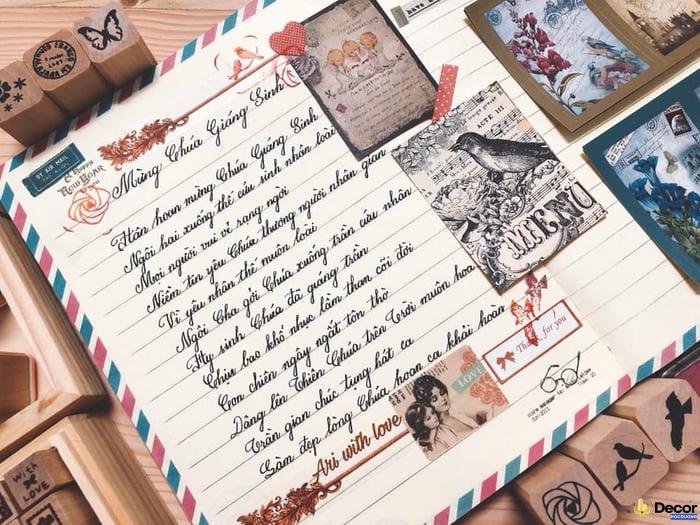 BY AIR MAIL
A HAPPY
NEW YEAR
Mừng Chúa Giáng Sinh
Hân hoan mừng Chúa Giáng Sinh
Ngôi hai xuống thế cứu sinh nhân loài
Mọi người vui vẻ rạng ngời
Niềm tin yêu Chúa thương người nhân gian
Vì yêu nhân thế muôn loài
Ngôi Cha gởi Chúa xuống trần cứu nhân
Hy sinh Chúa đã giáng trần
Chịu bao khổ nhục lầm than cõi đời
Con chiên ngây ngất tôn thờ
Dâng lên Thiên Chúa trên Trời muôn hoa
Trần gian chúc tụng hát ca
Làm đẹp lòng Chúa hoan ca khải hoàn
Ari with love
ACTE III
MENU
Thank for you
LOVE
with
LOVE
Decor